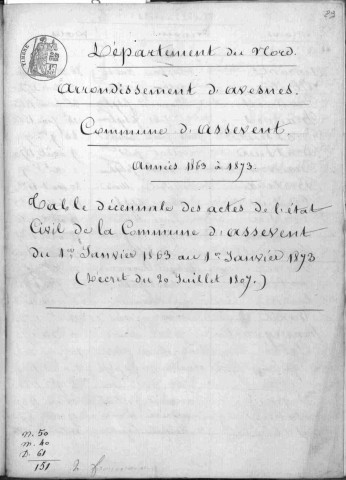 89
TIMBRE
Département du Nord.
Arrondissement d'Avesnes.
Commune d'Assevent.
Années 1863 à 1873.
Table décennale des actes de l'état
Civil de la Commune d'Assevent
du 1er Janvier 1863 au 1er Janvier 1873
(Décret du 20 Juillet 1807.)
N. 50
M. 40
D. 61
151